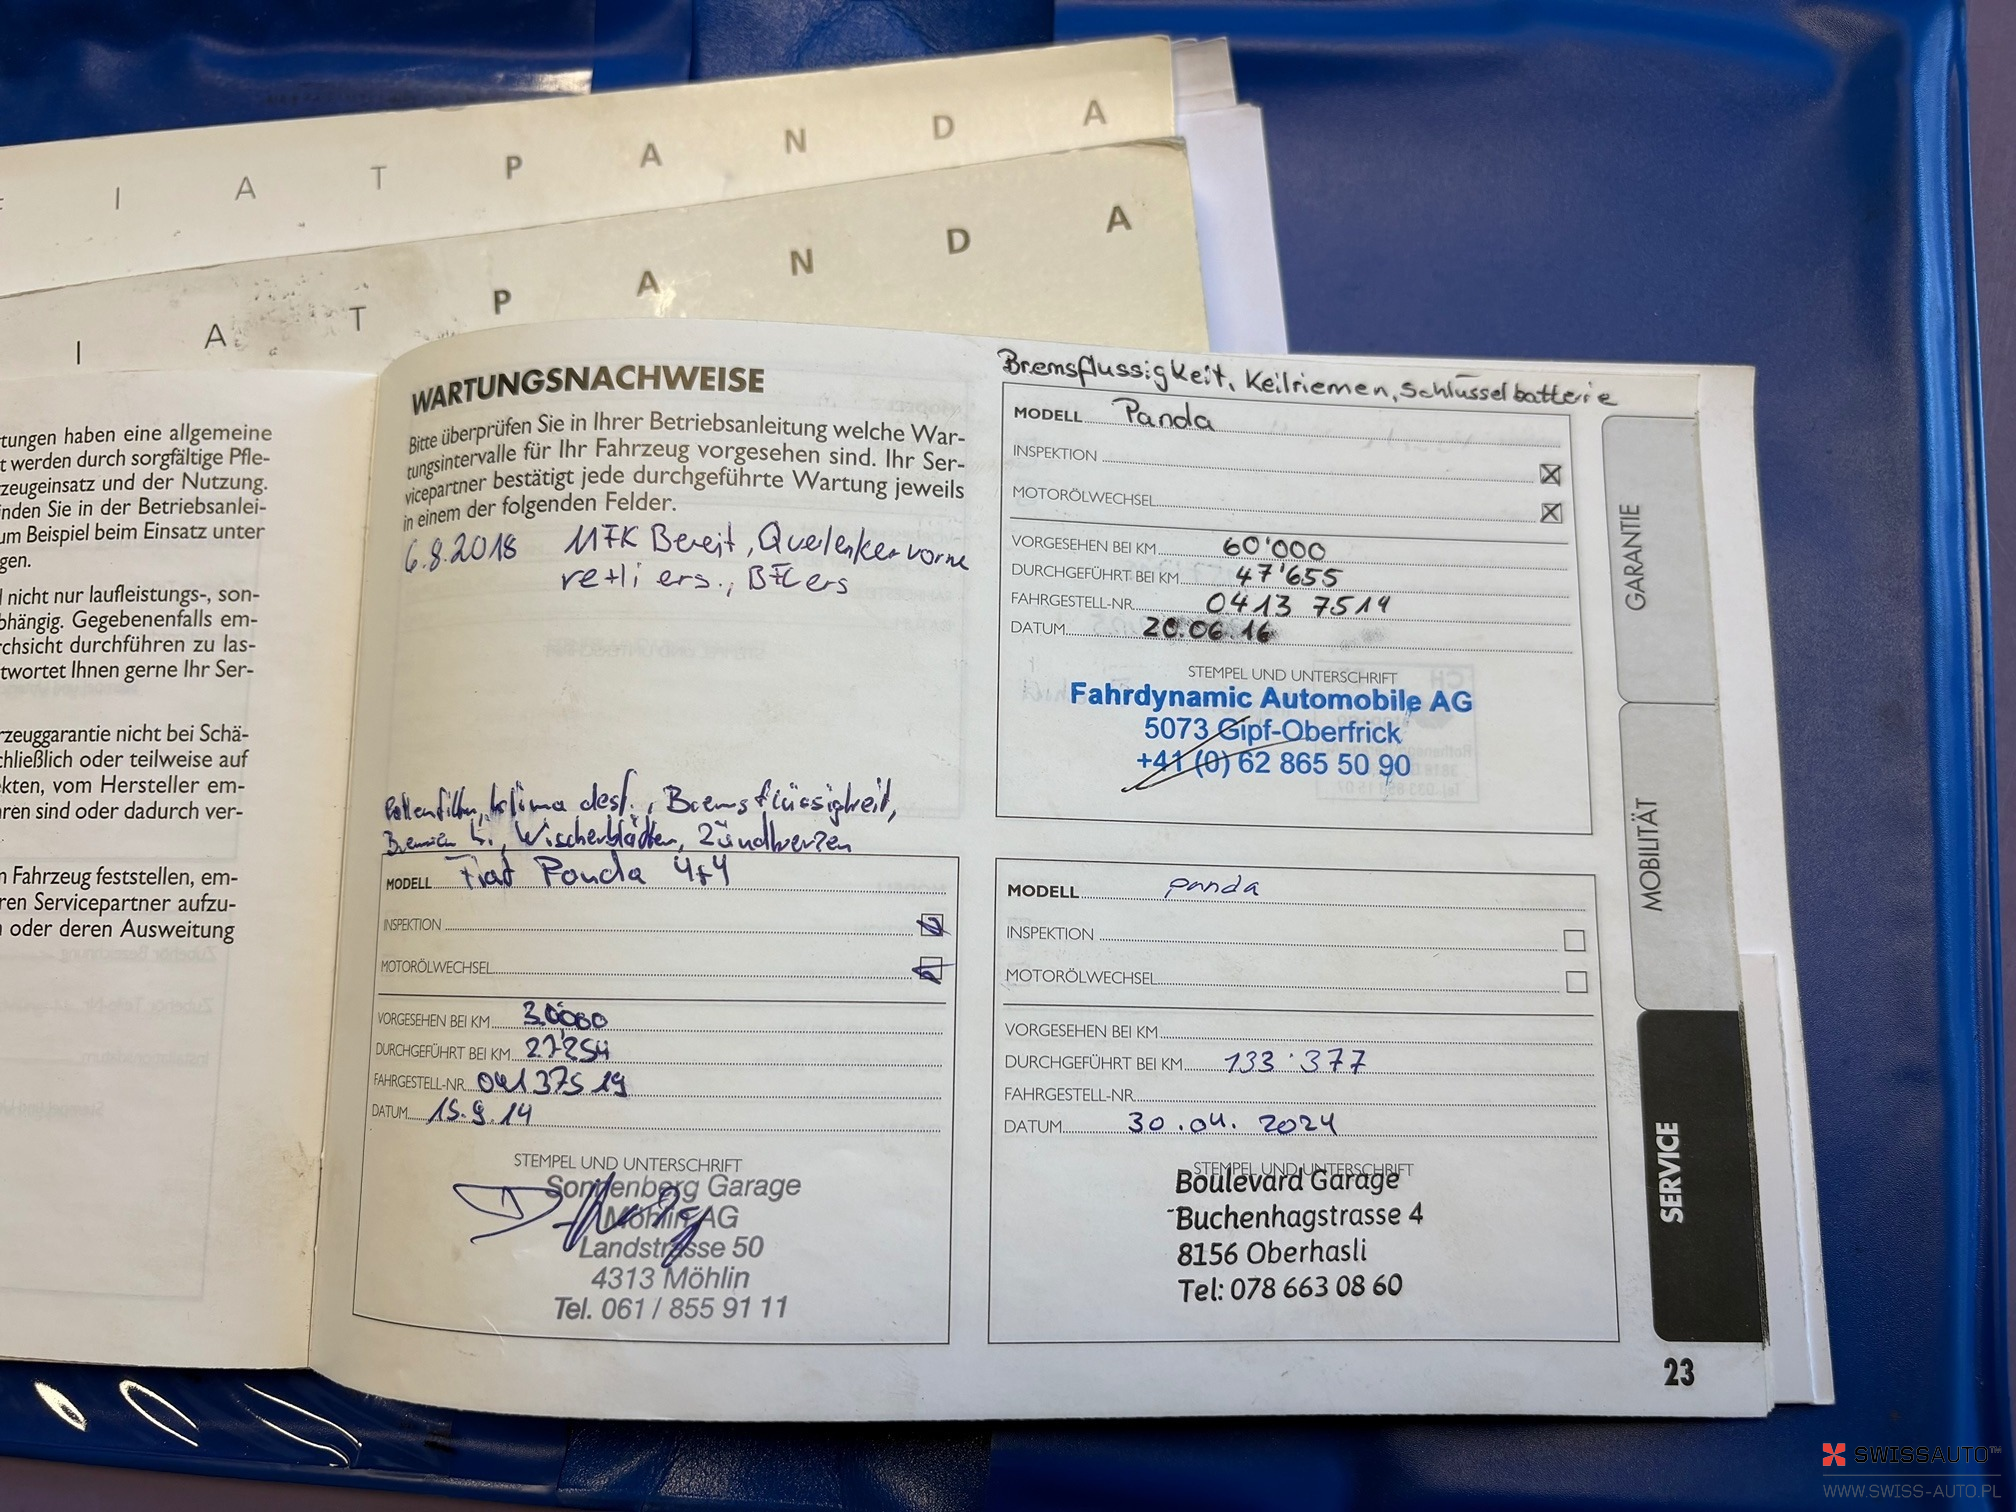 I A T P A N D A
I A T P A N D A
tungen haben eine allgemeine
t werden durch sorgfältige Pfle-
zeugeinsatz und der Nutzung.
inden Sie in der Betriebsanlei-
um Beispiel beim Einsatz unter
gen.
l nicht nur laufleistungs-, son-
bhängig. Gegebenenfalls em-
rchsicht durchführen zu las-
twortet Ihnen gerne Ihr Ser-
rzeuggarantie nicht bei Schä-
chließlich oder teilweise auf
ekten, vom Hersteller em-
ren sind oder dadurch ver-
m Fahrzeug feststellen, em-
ren Servicepartner aufzu-
n oder deren Ausweitung
WARTUNGSNACHWEISE
Bitte überprüfen Sie in Ihrer Betriebsanleitung welche War-
tungsintervalle für Ihr Fahrzeug vorgesehen sind. Ihr Ser-
vicepartner bestätigt jede durchgeführte Wartung jeweils
in einem der folgenden Felder.
6.8.2018 MFK Bereit, Querlenker vorne
re+li ers.,
Pollenfilter, Klima desf., Bremsflüssigkeit,
Wischerblätter, Zündkerzen
MODELL Fiat Panda 4x4
INSPEKTION
MOTORÖLWECHSEL
VORGESEHEN BEI KM 30'000
DURCHGEFÜHRT BEI KM 27'254
FAHRGESTELL-NR. 04137519
DATUM 15.9.14
STEMPEL UND UNTERSCHRIFT
Sonnenberg Garage
Möhlin AG
Landstrasse 50
4313 Möhlin
Tel. 061 / 855 91 11
Bremsflussigkeit, Keilriemen, Schlüsselbatterie
MODELL Panda
INSPEKTION
MOTORÖLWECHSEL
VORGESEHEN BEI KM 60'000
DURCHGEFÜHRT BEI KM 47'655
FAHRGESTELL-NR. 0413 7519
DATUM 20.06.16
STEMPEL UND UNTERSCHRIFT
Fahrdynamic Automobile AG
5073 Gipf-Oberfrick
+41 (0) 62 865 50 90
MODELL panda
INSPEKTION
MOTORÖLWECHSEL
VORGESEHEN BEI KM
DURCHGEFÜHRT BEI KM 133'377
FAHRGESTELL-NR.
DATUM 30.04.2024
STEMPEL UND UNTERSCHRIFT
Boulevard Garage
Buchenhagstrasse 4
8156 Oberhasli
Tel: 078 663 08 60
GARANTIE
MOBILITÄT
SERVICE
23
SWISSAUTO™
WWW.SWISS-AUTO.PL